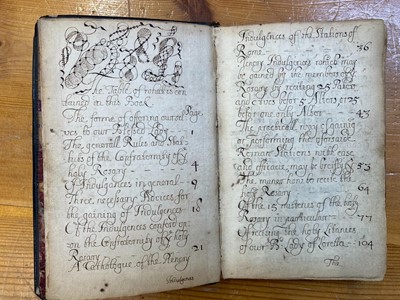 The Table of what is con
tained in this Book.
The forme of offering our selves
Page.
ves to our Blessed Lady 1
The generall Rules and Stat-
tuts of the Confraternity of ye
holy Rosary 4
Of Indulgences in generall 9
Three necessary Notices, for
the gaining of Indulgences 18
Of the Indulgences conferd up-
on the Confraternity of ye holy
Rosary 21
A Cathologue of the Plenary
Indulgences
Indulgences of the Stations of
Rome 36
Plenary Indulgences which may
be gained by the members of ye
Rosary by reciting 25 Paters
and Aves before 5 Altars, or 25
before one only Altar 43
The practicall way of gaining
or performing the aforesaid
Roman Stations with ease
and fficacie, may be briefly 53
The maner how to recite the
holy Rosary 64
Of the 15 misteries of the holy
Rosary in particular 77
Of reciting the holy Litanies
of our Bd Lady of Loretta 104
The